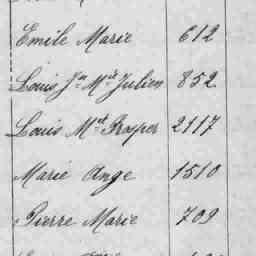 Emile Marie 612
Louis Jn Mie Julien 852
Louis Mie Prosper 2117
Marie Ange 1510
Pierre Marie 709